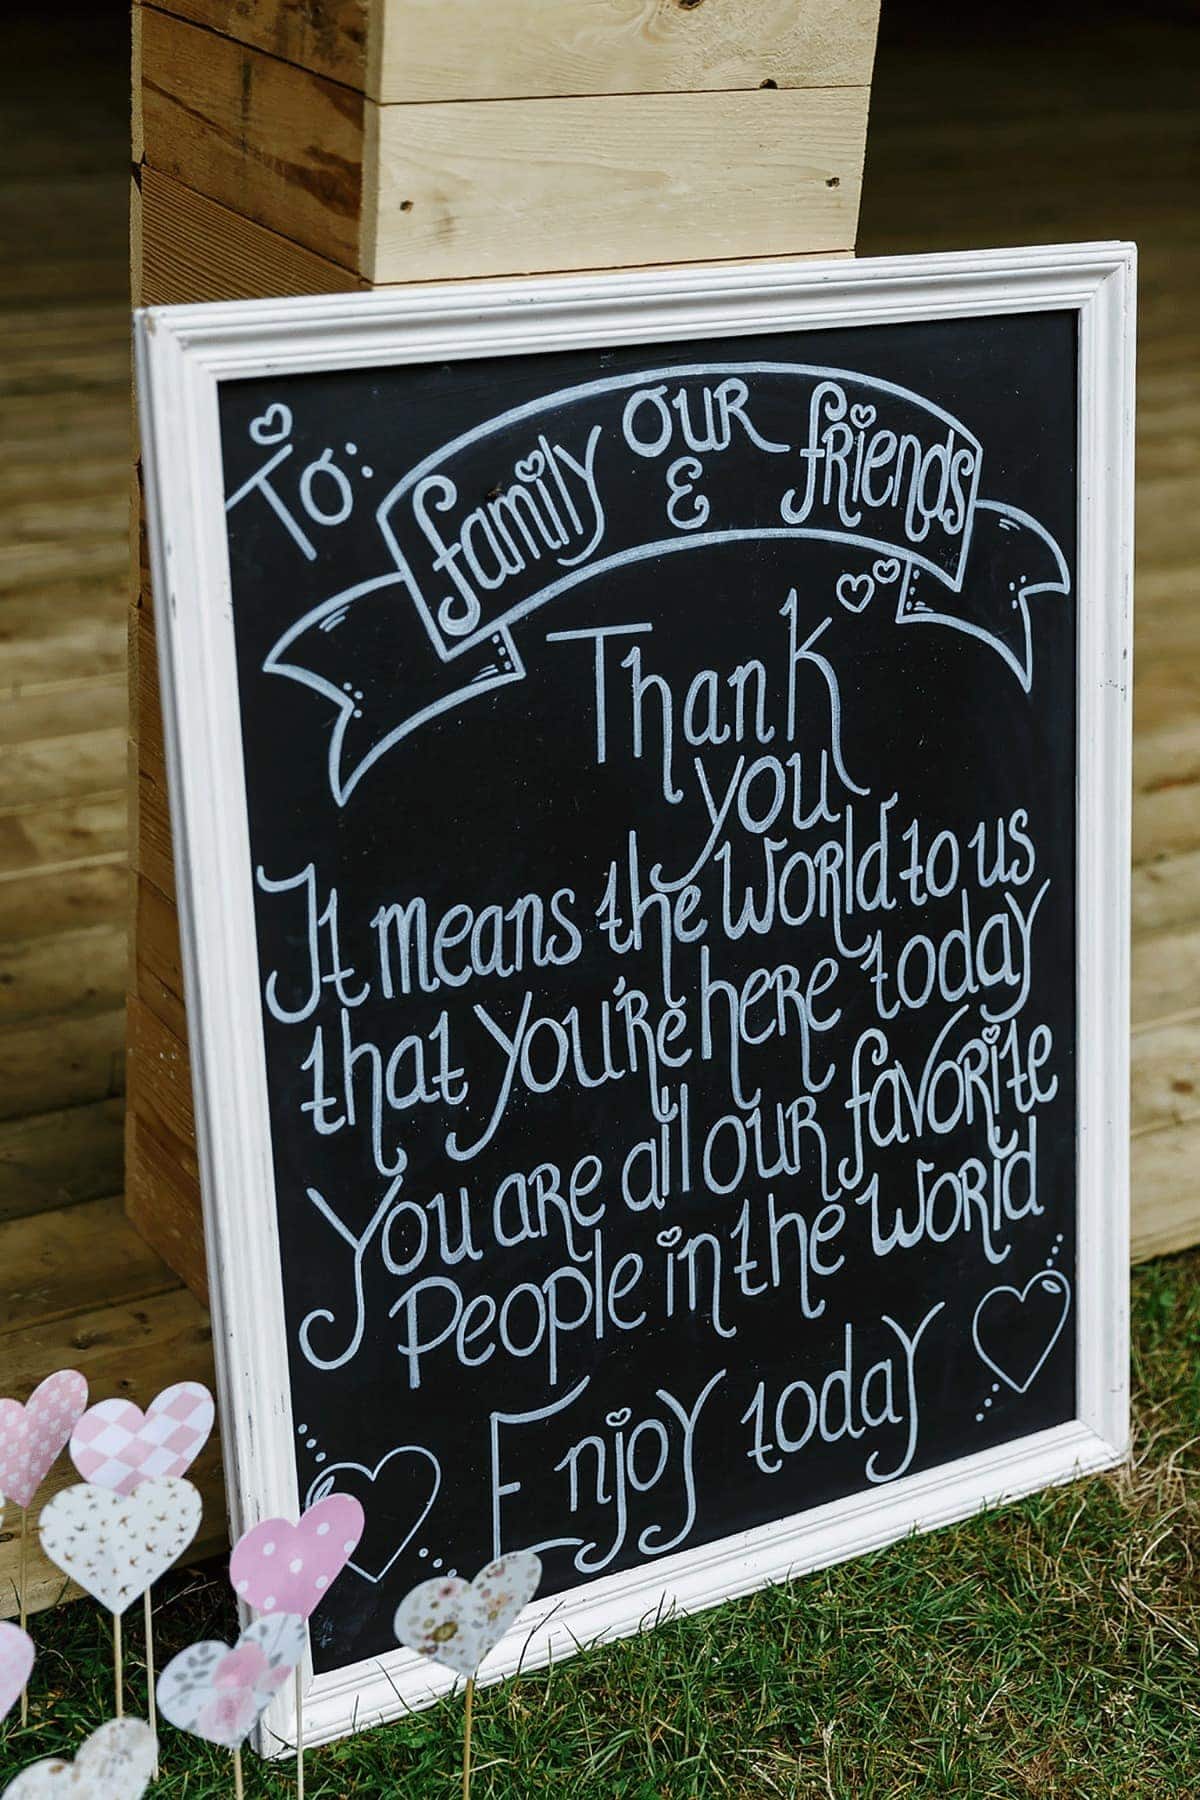 To:
OUR
family & friends
Thank
you
It means the World to us
that you're here today
You are all our favorite
People in the World
Enjoy today